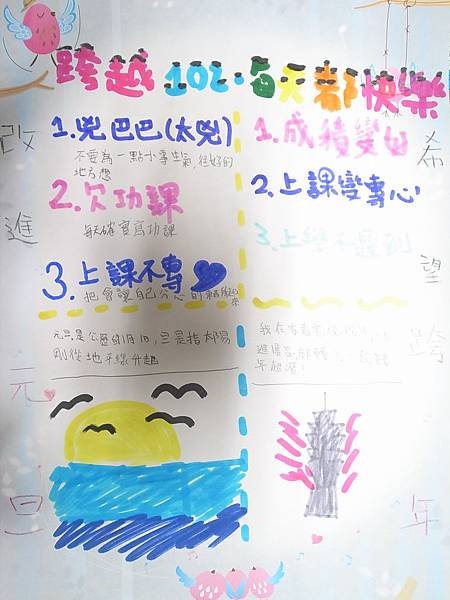 跨越102.每天都快樂
改進
元旦
1.兇巴巴(太兇)
不要為一點小事生氣,往好的
地方想
2.欠功課
每天確實寫功課
3.上課不專心
把會讓自己分心的
元旦是公曆的1月1日,旦是指太陽
剛從地平線升起
希望
跨年
1.成積變好
2.上課變專心
3.上學不遲到
我在看